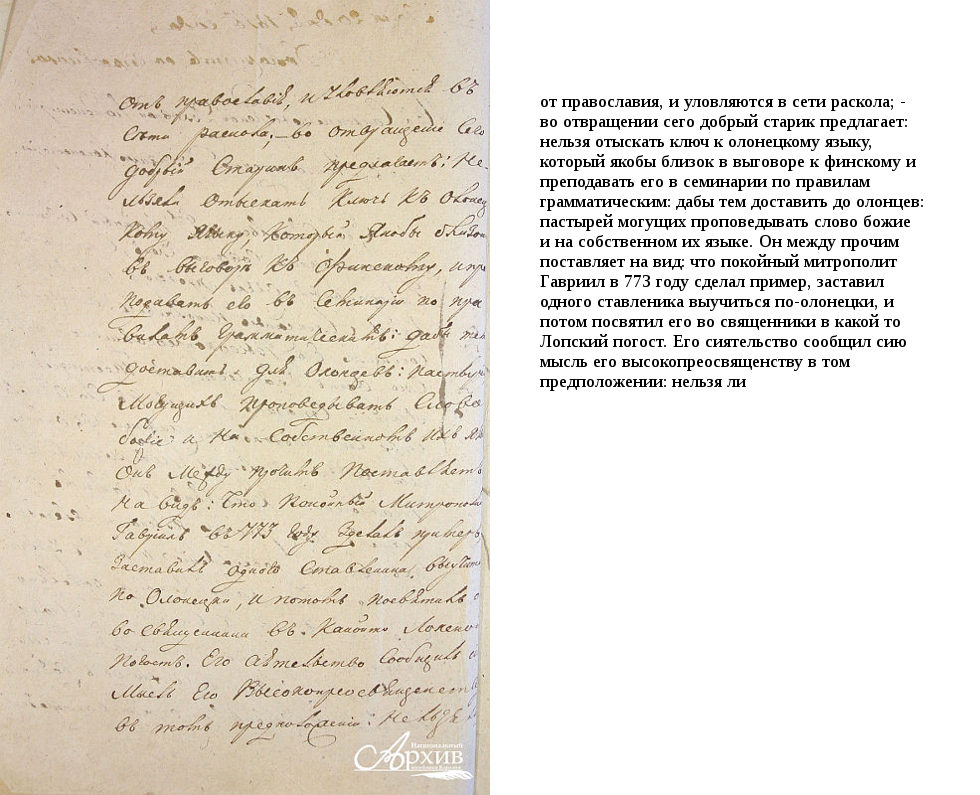 Отъ православія, и уловляются въ
Сѣти раскола; – во отвращеніе Сего
добрый Старикъ предлагаетъ: Не
льзяли отыскать Ключь къ Олонец
Кому языку, который Якобы близок
въ выговорѣ къ Финскому, и пре
подавать его въ Семинаріи по пра
виламъ Грамматическимъ: дабы тем
доставить для Олонцевъ: Пастыре
Могущихъ Проповедывать Слово
божіе и на Собственномъ Ихъ язы
Онъ Между прочимъ Поставляетъ
На видъ: Что Покойный Митропол
Гавріилъ въ 773 Году Зделалъ примеръ
Заставилъ одного Ставленика выучит
По Олонецки, и потомъ посвятилъ е
во Священники въ Какойто Лопско
Погостъ. Его Сіятельство Сообщилъ с
Мысль Его Высокопреосвященств
въ томъ предположеніи: Нельзя
Национальный
Архив
республики Карелия
от православия, и уловляются в сети раскола; -
во отвращении сего добрый старик предлагает:
нельзя отыскать ключ к олонецкому языку,
который якобы близок в выговоре к финскому и
преподавать его в семинарии по правилам
грамматическим: дабы тем доставить до олонцев:
пастырей могущих проповедывать слово божие
и на собственном их языке. Он между прочим
поставляет на вид: что покойный митрополит
Гавриил в 773 году сделал пример, заставил
одного ставленика выучиться по-олонецки, и
потом посвятил его во священники в какой то
Лопский погост. Его сиятельство сообщил сию
мысль его высокопреосвященству в том
предположении: нельзя ли